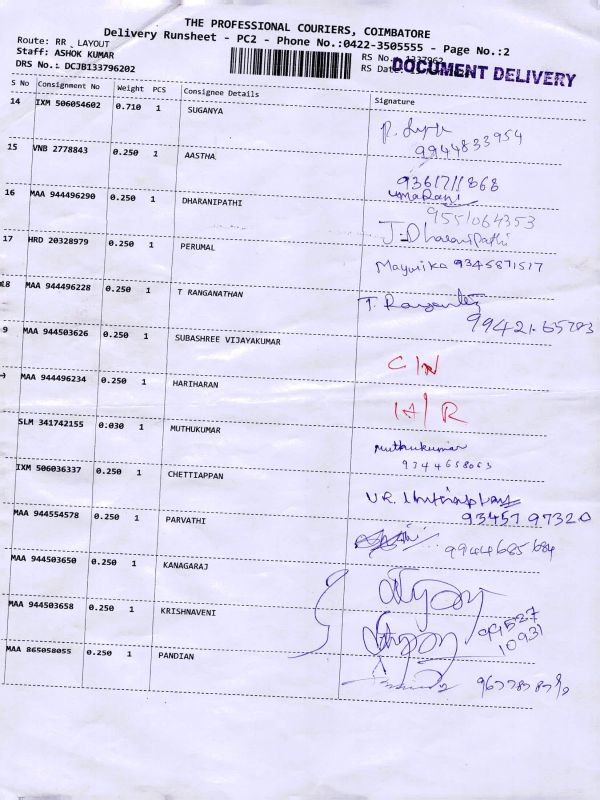 THE PROFESSIONAL COURIERS, COIMBATORE
Delivery Runsheet - PC2 - Phone No.:0422-3505555 - Page No.:2
Route: RR LAYOUT
Staff: ASHOK KUMAR
DRS No.: DCJB133796202
RS No.
RS Date:
DOCUMENT DELIVERY
S No Consignment No Weight PCS Consignee Details Signature
14 IXM 506054602 0.710 1 SUGANYA
9944833954
15 VNB 2778843 0.250 1 AASTHA
9361711868
umaRani
16 MAA 944496290 0.250 1 DHARANIPATHI
9551064353
J.Dharanipathi
17 HRD 20328979 0.250 1 PERUMAL
Mayurika 9345871517
18 MAA 944496228 0.250 1 T RANGANATHAN
99421-65783
9 MAA 944503626 0.250 1 SUBASHREE VIJAYAKUMAR
C/N
MAA 944496234 0.250 1 HARIHARAN
IA/R
SLM 341742155 0.030 1 MUTHUKUMAR
Muthukumar
9344658063
IXM 506036337 0.250 1 CHETTIAPPAN
93457 97320
MAA 944554578 0.250 1 PARVATHI
9944685684
MAA 944503650 0.250 1 KANAGARAJ
MAA 944503658 0.250 1 KRISHNAVENI
10931
MAA 865058055 0.250 1 PANDIAN